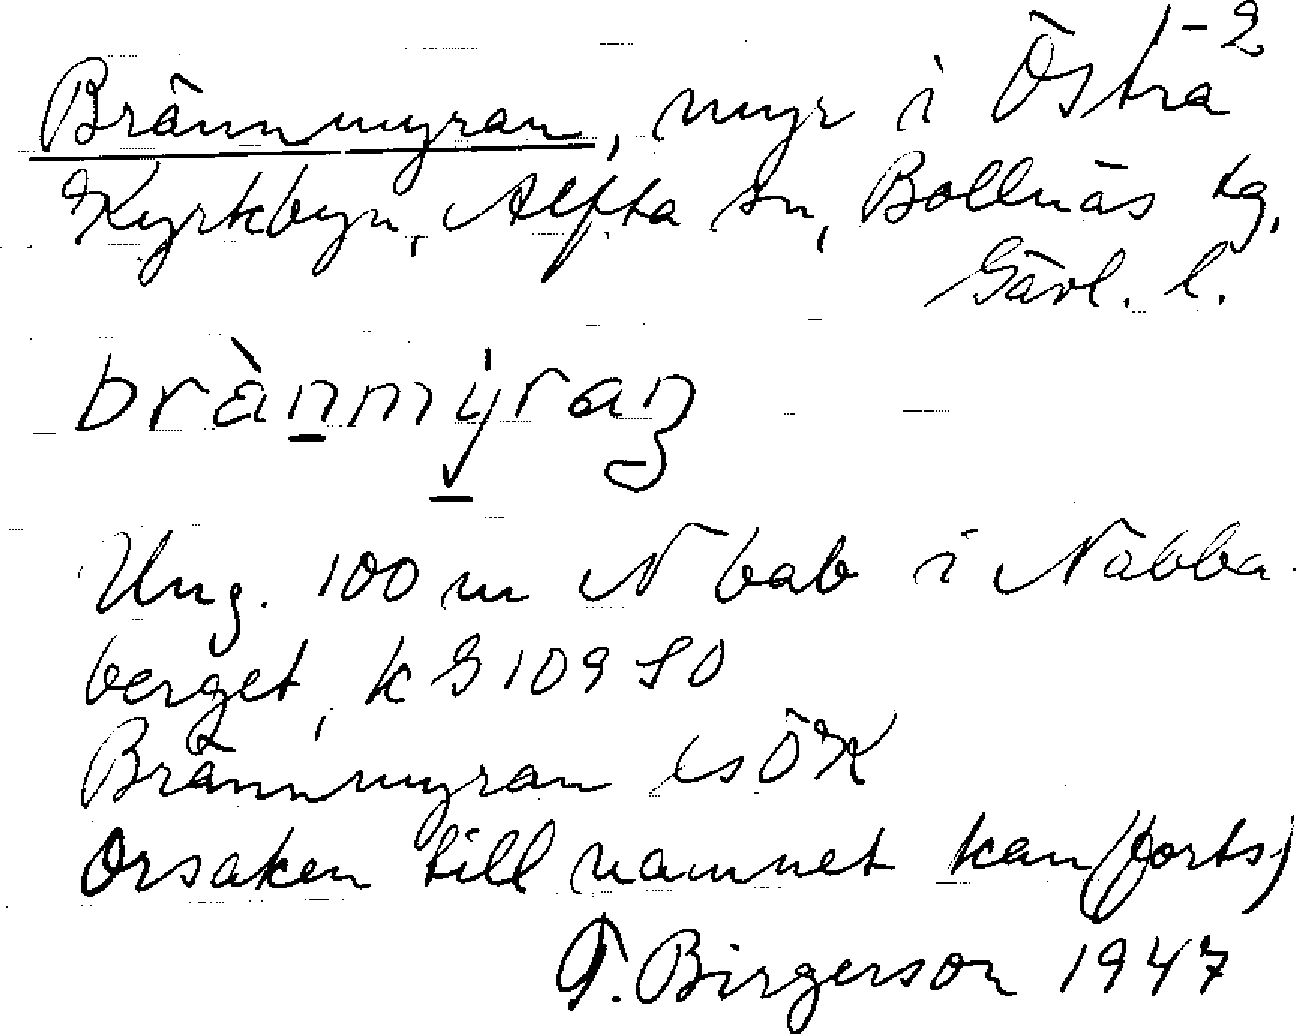 1-2
Brännmyran, myr i Östra
Kyrkbyn, Alfta sn, Bollnäs tg,
Gävl. l.
brànmýraŋ
Ung. 100 m N bab i Nabba-
berget, k G 109 SO
Brännmyran ls ÖK
Orsaken till namnet kan (forts)
T. Birgerson 1947